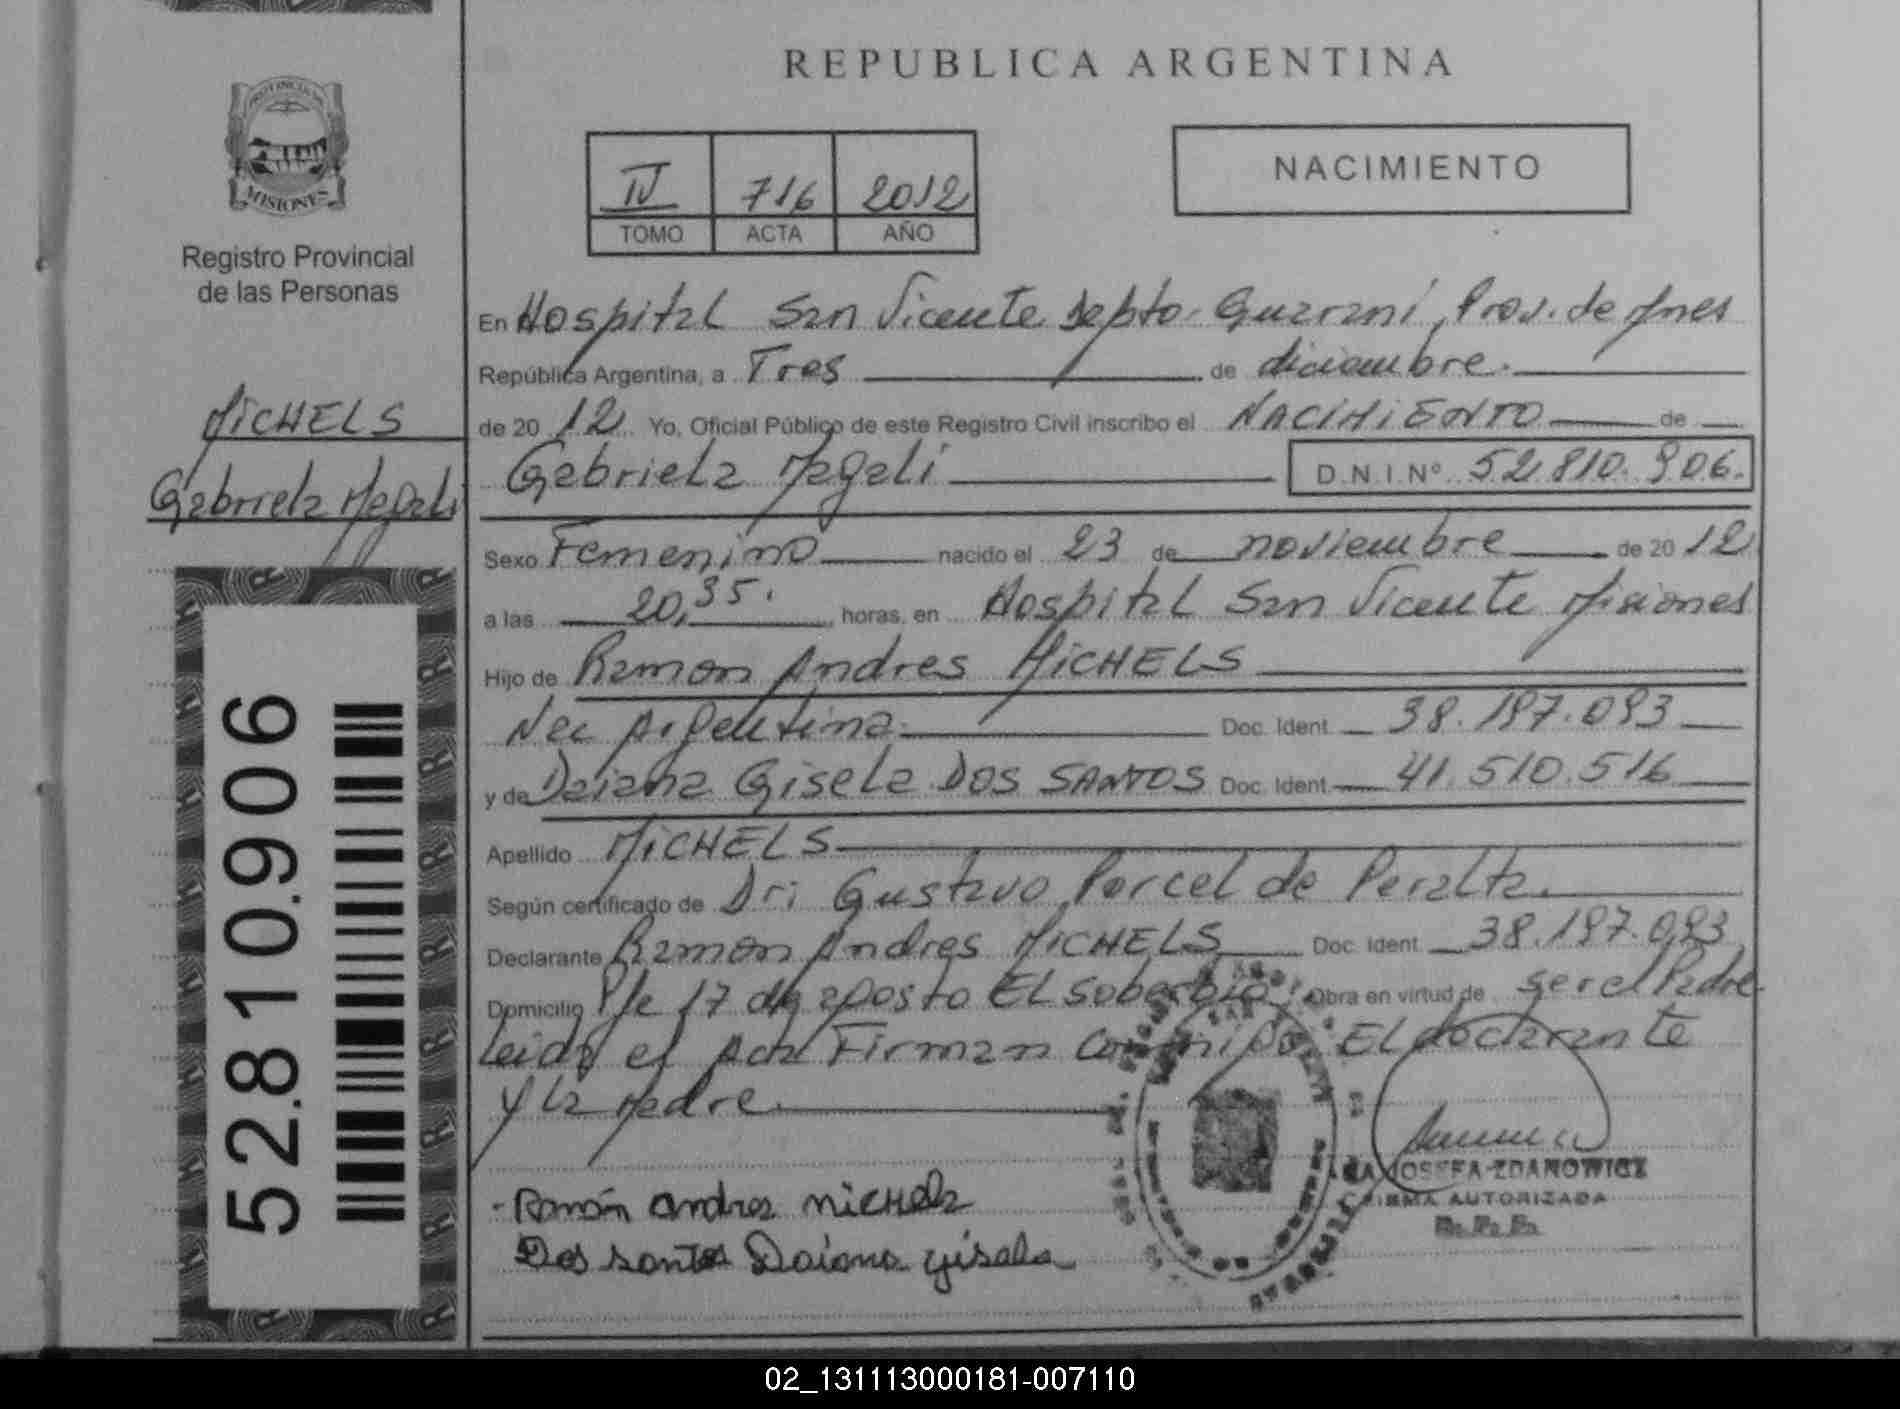 REPUBLICA ARGENTINA
PROVINCIA DE
MISIONES
Registro Provincial
de las Personas
MICHELS
Gabriela Magali
52.810.906
IV 716 2012
TOMO ACTA AÑO
NACIMIENTO
En Hospital San Vicente Depto. Guarani, Prov. de Mnes
República Argentina, a Tres de diciembre.
de 20 12 Yo, Oficial Público de este Registro Civil inscribo el NACIMIENTO de
Gabriela Magali D.N.I.Nº 52.810.906.
Sexo Femenino nacido el 23 de noviembre de 20 12
a las 20,35. horas, en Hospital San Vicente Misiones
Hijo de Ramon Andres MICHELS
Nac Argentina. Doc. Ident. 38.197.093
y de Daiana Gisela DOS SANTOS Doc. Ident. 41.510.516
Apellido MICHELS
Según certificado de Dr: Gustavo Porcel de Peralta.
Declarante Ramon Andres MICHELS Doc. Ident. 38.197.093
Domicilio 17 de agosto EL Soberbio Obra en virtud de ser el Padre
Leida el acta Firman conmigo EL declarante
y La Madre.
-Ramón andres MICHELS
Dos santos Daiana gisela
JOSEFA ZDANOWICZ
FIRMA AUTORIZADA
R.P.P.
02_131113000181-007110